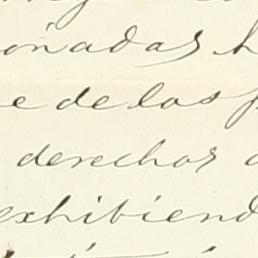 oñadas h
e de los p
derechos d
exhibiend